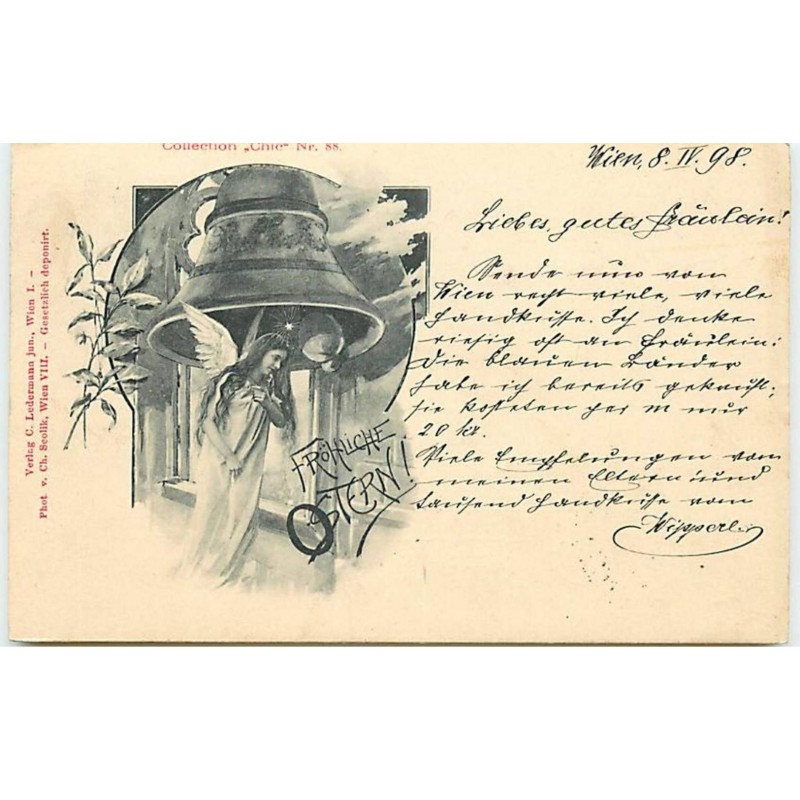 Collection „Chic" Nr. 88.
Wien, 8. IV. 98.
Liebes, gutes Fräulein!
Sende nun von
Wien recht viele, viele
Handküsse. Ich denke
riesig oft an Fräulein:
Die blauen Bänder
habe ich bereits gekauft;
sie kosteten per m nur
20 kr.
Viele Empfelungen von
meinen Eltern und
tausend Handküsse vom
Wipperl.
FRÖHLICHE
OSTERN!
Verlag C. Ledermann jun., Wien I. –
Phot v. Ch. Scolik, Wien VIII. – Gesetzlich deponirt.